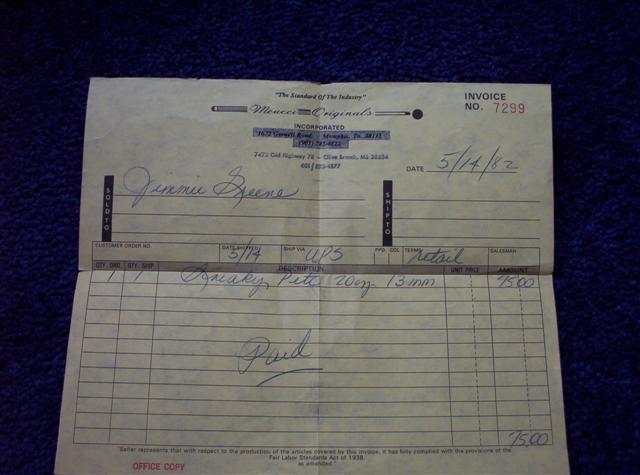 "The Standard Of The Industry"
INVOICE
NO. 7299
Meucci Originals
INCORPORATED
Memphis, Tn. 38111
7472 Old Highway 78 - Olive Branch, MS 38654
DATE 5/14/82
SOLD TO
Jimmie Greene
SHIP TO
CUSTOMER ORDER NO. DATE SHIPPED SHIP VIA PPD. COL TERMS SALESMAN
5/14 UPS retail
QTY. ORD. QTY. SHIP. DESCRIPTION UNIT PRICE AMOUNT
1 1 Sneaky Pete 20oz 13mm 75.00
Paid
75.00
"Seller represents that with respect to the production of the articles covered by this invoice, it has fully complied with the provisions of the
Fair Labor Standards Act of 1938,
as amended."
OFFICE COPY